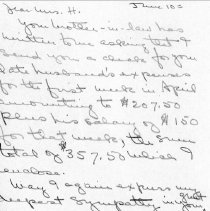 Dear Mrs. H. June 10
Your brother-in-law has
written to me asking that I
send you a check for your
late husband's expenses
for the first week in April
amounting to $207.50
Plus his salary of $150
for that week, the sum
total of $357.50 which I
enclose.
May I again express my
deepest sympathy in your great